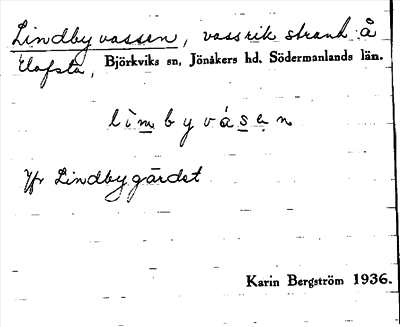 Lindbyvassen, vassrik strand å
Olofsta, Björkviks sn, Jönåkers hd. Södermanlands län.
lìmbyvásen
Jfr Lindbygärdet
Karin Bergström 1936.